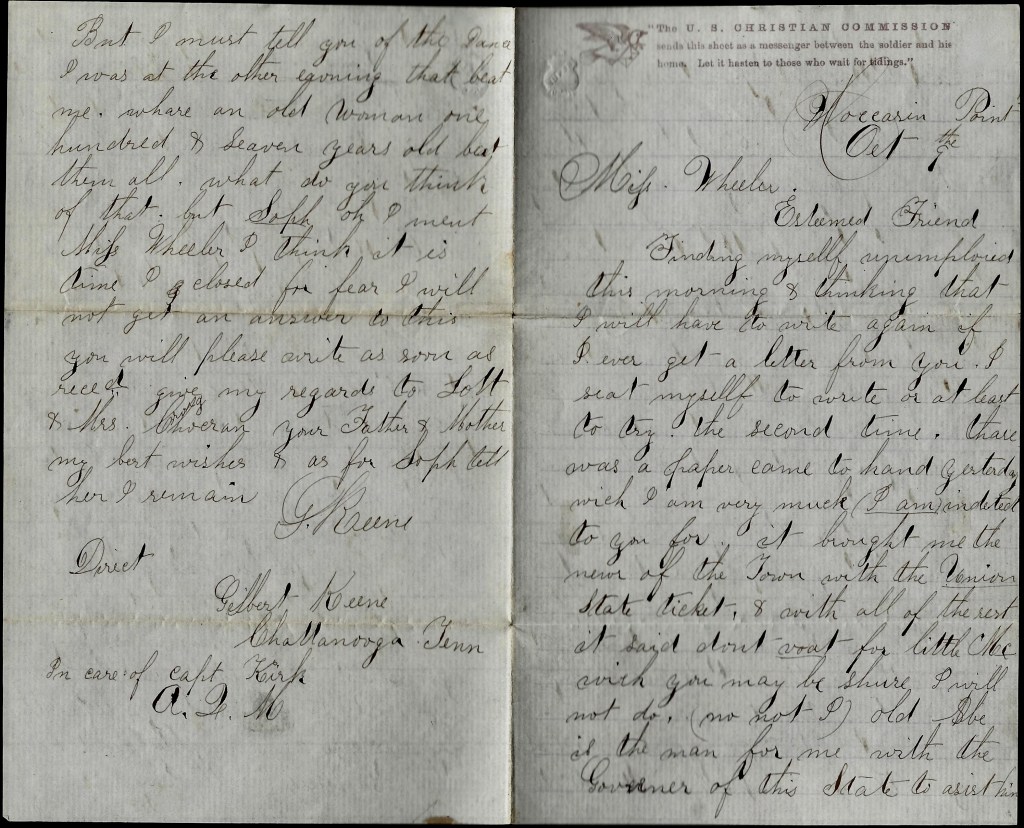 "The U. S. CHRISTIAN COMMISSION
sends this sheet as a messenger between the soldier and his
home. Let it hasten to those who wait for tidings."
Moccasin Point
Oct the 9
Miss. Wheeler.
Esteemed Friend
Finding mysellf unimploied
this morning & thinking that
I will have to write again if
I ever get a letter from you. I
seat mysellf to write or at least
to try. the second time. thare
was a paper came to hand yesterday
wich I am very much (I am) indeted
to you for. it brought me the
news of the Town with the Union
State ticket, & with all of the rest
it said dont voat for little Mc
wich you may be shure I will
not do, (no not I) old Abe
is the man for me with the
Governer of this State to asist him
But I must tell you of the Dance
I was at the other eavning that beat
me. whare an old woman one
hundred & seaven years old beat
them all. what do you think
of that. but Soph oh I ment
Miss Wheeler I think it is
time I closed for fear I will
not get an answer to this
you will please write as soon as
reced. give my regards to Lott
& Mrs. your Father & Mother
my best wishes & as for Soph tell
her I remain
G. Keene
Direct
Gilbert Keene
Chattanooga Tenn
In care of capt Kirk
A. Q. M